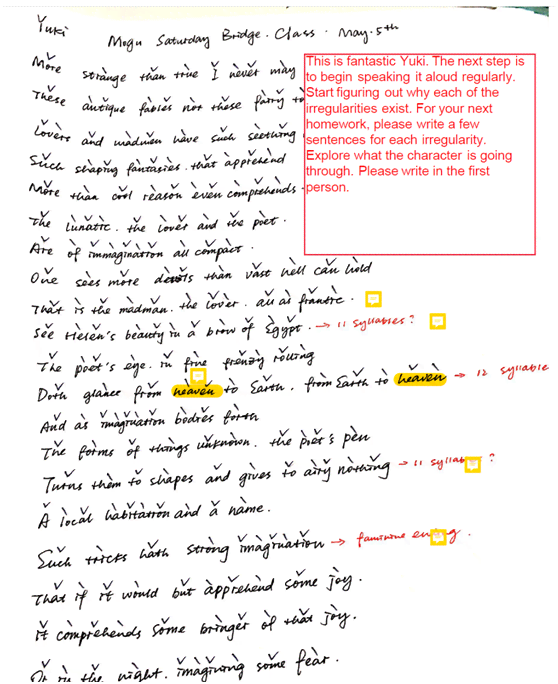 Yuki
Mogu Saturday Bridge. Class. May. 5th
More strange than true I never may
These antique fables nor these fairy to
Lovers and madmen have such seething
Such shaping fantasies. that apprehend
More than cool reason even comprehends.
The lunatic. the lover and the poet.
Are of immagination all compact.
One sees more devils than vast hell can hold
That is the madman. the lover. all as frantic.
See Helen's beauty in a brow of Egypt. → 11 syllables?
The poet's eye. in fine frenzy rolling
Doth glance from heaven to Earth. from Earth to heaven → 12 syllable
And as imagination bodies forth
The forms of things unknown. the poet's pen
Turns them to shapes and gives to airy nothing → 11 ?
A local habitation and a name.
Such tricks hath strong imagination → faminine
That if it would but apprehend some joy.
it comprehends some bringer of that joy.
Or in the night. imagining some fear.
This is fantastic Yuki. The next step is
to begin speaking it aloud regularly.
Start figuring out why each of the
irregularities exist. For your next
homework, please write a few
sentences for each irregularity.
Explore what the character is going
through. Please write in the first
person.